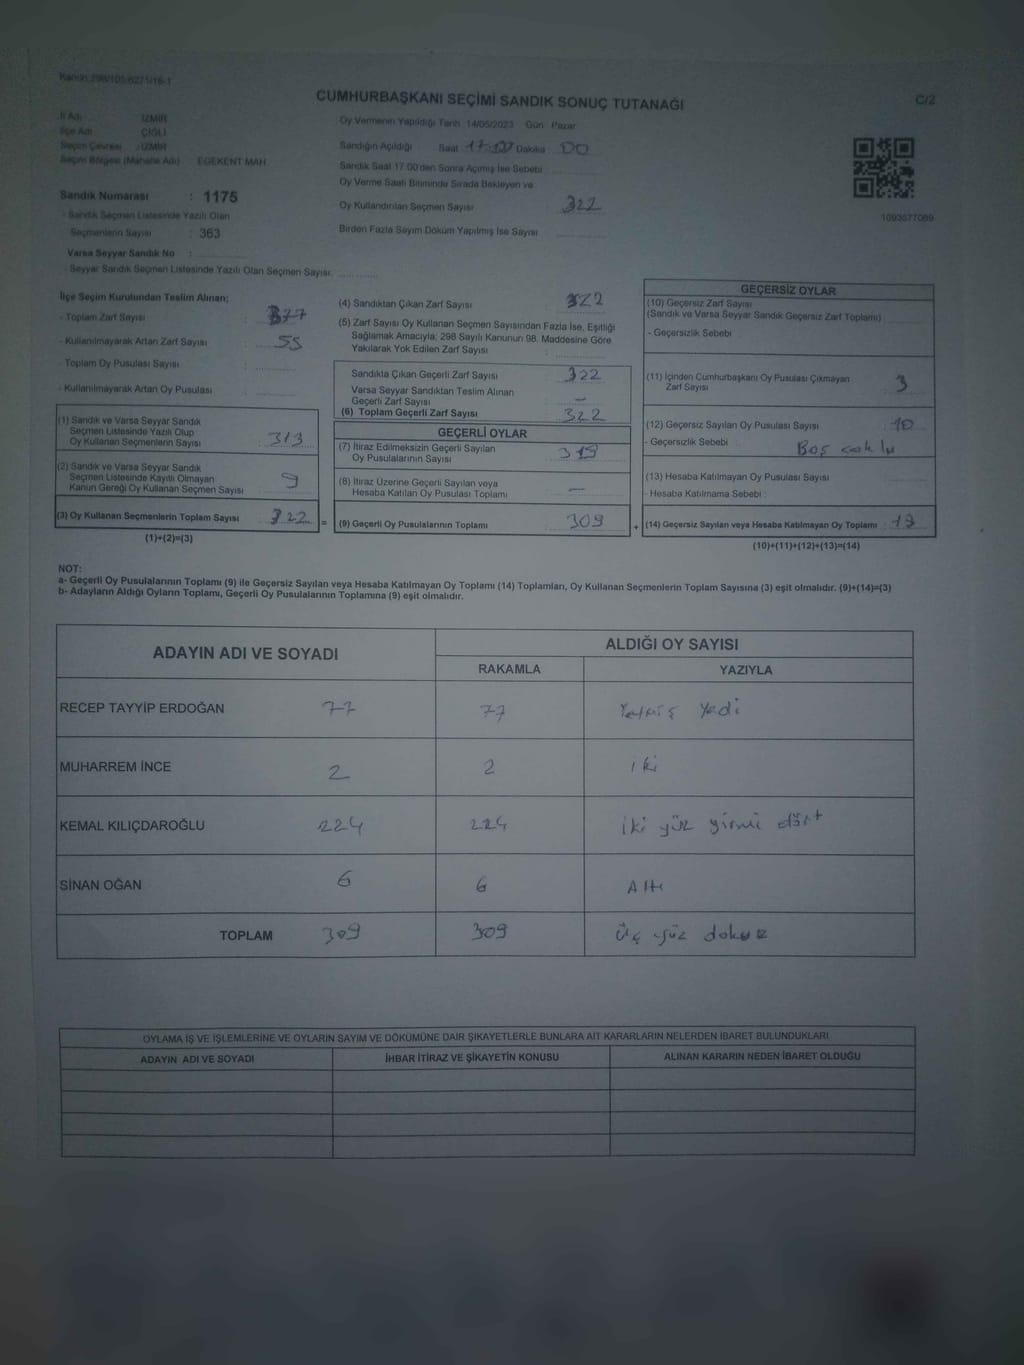 Kanun 298/105/6271/16-1
CUMHURBAŞKANI SEÇİMİ SANDIK SONUÇ TUTANAĞI
C/2
İl Adı İZMİR
İlçe Adı ÇİĞLİ
Seçim Çevresi : İZMİR
Seçim Bölgesi (Mahalle Adı) EGEKENT MAH.
Sandık Numarası : 1175
- Sandık Seçmen Listesinde Yazılı Olan
Seçmenlerin Sayısı : 363
Varsa Seyyar Sandık No :
- Seyyar Sandık Seçmen Listesinde Yazılı Olan Seçmen Sayısı:
Oy Vermenin Yapıldığı Tarih 14/05/2023 Gün Pazar
Sandığın Açıldığı Saat 17:00 Dakika 00
Sandık Saat 17:00'den Sonra Açılmış İse Sebebi
Oy Verme Saati Bitiminde Sırada Bekleyen ve
Oy Kullandırılan Seçmen Sayısı 322
Birden Fazla Sayım Döküm Yapılmış İse Sayısı
1093577069
İlçe Seçim Kurulundan Teslim Alınan;
- Toplam Zarf Sayısı : 377
- Kullanılmayarak Artan Zarf Sayısı : 55
- Toplam Oy Pusulası Sayısı :
- Kullanılmayarak Artan Oy Pusulası :
(1) Sandık ve Varsa Seyyar Sandık
Seçmen Listesinde Yazılı Olup
Oy Kullanan Seçmenlerin Sayısı : 313
(2) Sandık ve Varsa Seyyar Sandık
Seçmen Listesinde Kayıtlı Olmayan
Kanun Gereği Oy Kullanan Seçmen Sayısı : 9
(3) Oy Kullanan Seçmenlerin Toplam Sayısı : 322 =
(1)+(2)=(3)
(4) Sandıktan Çıkan Zarf Sayısı 322
(5) Zarf Sayısı Oy Kullanan Seçmen Sayısından Fazla İse, Eşitliği
Sağlamak Amacıyla; 298 Sayılı Kanunun 98. Maddesine Göre
Yakılarak Yok Edilen Zarf Sayısı :
Sandıkta Çıkan Geçerli Zarf Sayısı : 322
Varsa Seyyar Sandıktan Teslim Alınan
Geçerli Zarf Sayısı : -
(6) Toplam Geçerli Zarf Sayısı : 322
GEÇERLİ OYLAR
(7) İtiraz Edilmeksizin Geçerli Sayılan
Oy Pusulalarının Sayısı : 319
(8) İtiraz Üzerine Geçerli Sayılan veya
Hesaba Katılan Oy Pusulası Toplamı : -
(9) Geçerli Oy Pusulalarının Toplamı : 309 +
GEÇERSİZ OYLAR
(10) Geçersiz Zarf Sayısı
(Sandık ve Varsa Seyyar Sandık Geçersiz Zarf Toplamı)
- Geçersizlik Sebebi :
(11) İçinden Cumhurbaşkanı Oy Pusulası Çıkmayan
Zarf Sayısı : 3
(12) Geçersiz Sayılan Oy Pusulası Sayısı : 10
- Geçersizlik Sebebi : Boş
(13) Hesaba Katılmayan Oy Pusulası Sayısı :
- Hesaba Katılmama Sebebi :
(14) Geçersiz Sayılan veya Hesaba Katılmayan Oy Toplamı : 13
(10)+(11)+(12)+(13)=(14)
NOT:
a- Geçerli Oy Pusulalarının Toplamı (9) ile Geçersiz Sayılan veya Hesaba Katılmayan Oy Toplamı (14) Toplamları, Oy Kullanan Seçmenlerin Toplam Sayısına (3) eşit olmalıdır. (9)+(14)=(3)
b- Adayların Aldığı Oyların Toplamı, Geçerli Oy Pusulalarının Toplamına (9) eşit olmalıdır.
ADAYIN ADI VE SOYADI ALDIĞI OY SAYISI
RAKAMLA YAZIYLA
RECEP TAYYİP ERDOĞAN 77 77 Yetmiş Yedi
MUHARREM İNCE 2 2 iki
KEMAL KILIÇDAROĞLU 224 224 iki yüz yirmi dört
SİNAN OĞAN 6 6 Altı
TOPLAM 309 309 üç yüz dokuz
OYLAMA İŞ VE İŞLEMLERİNE VE OYLARIN SAYIM VE DÖKÜMÜNE DAİR ŞİKAYETLERLE BUNLARA AİT KARARLARIN NELERDEN İBARET BULUNDUKLARI
ADAYIN ADI VE SOYADI İHBAR İTİRAZ VE ŞİKAYETİN KONUSU ALINAN KARARIN NEDEN İBARET OLDUĞU